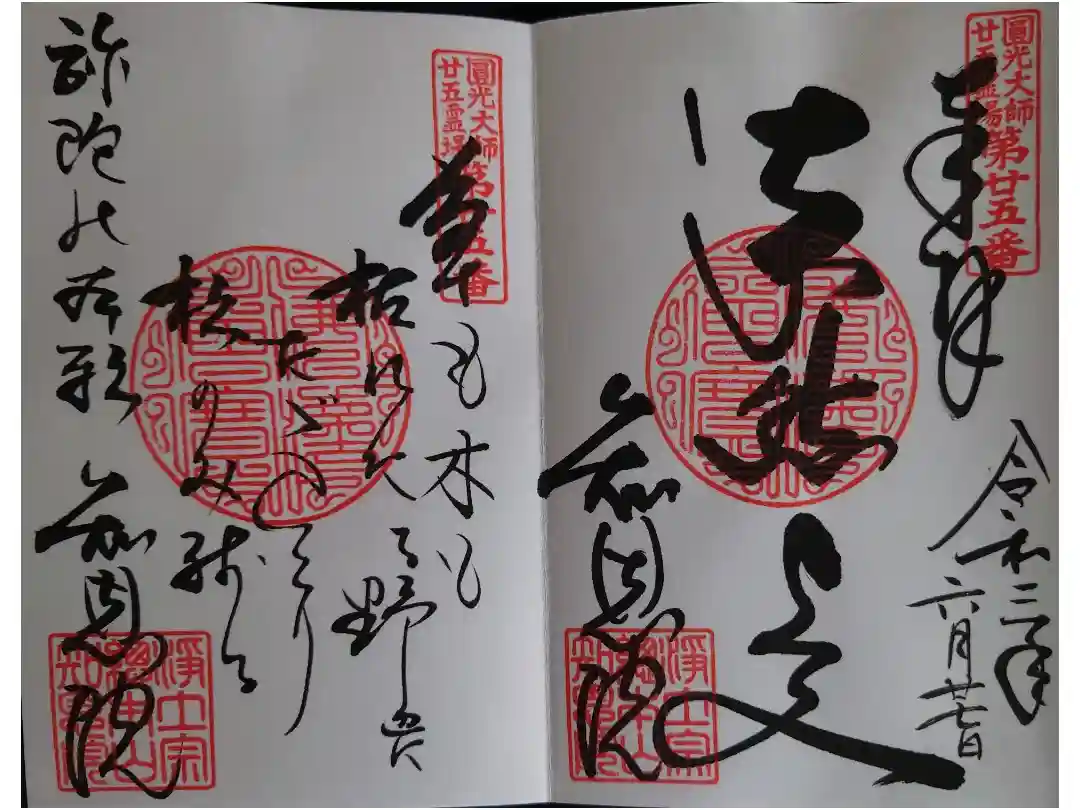 圓光大師
廿五霊場
第廿五番
奉拝
令和三年
六月廿七日
法然上人
知恩院
浄土宗
總本山
知恩院
圓光大師
廿五霊場
第廿五番
草も木も
枯れたる野辺に
ただひとり
松のみ残る
弥陀の本願
知恩院
浄土宗
總本山
知恩院